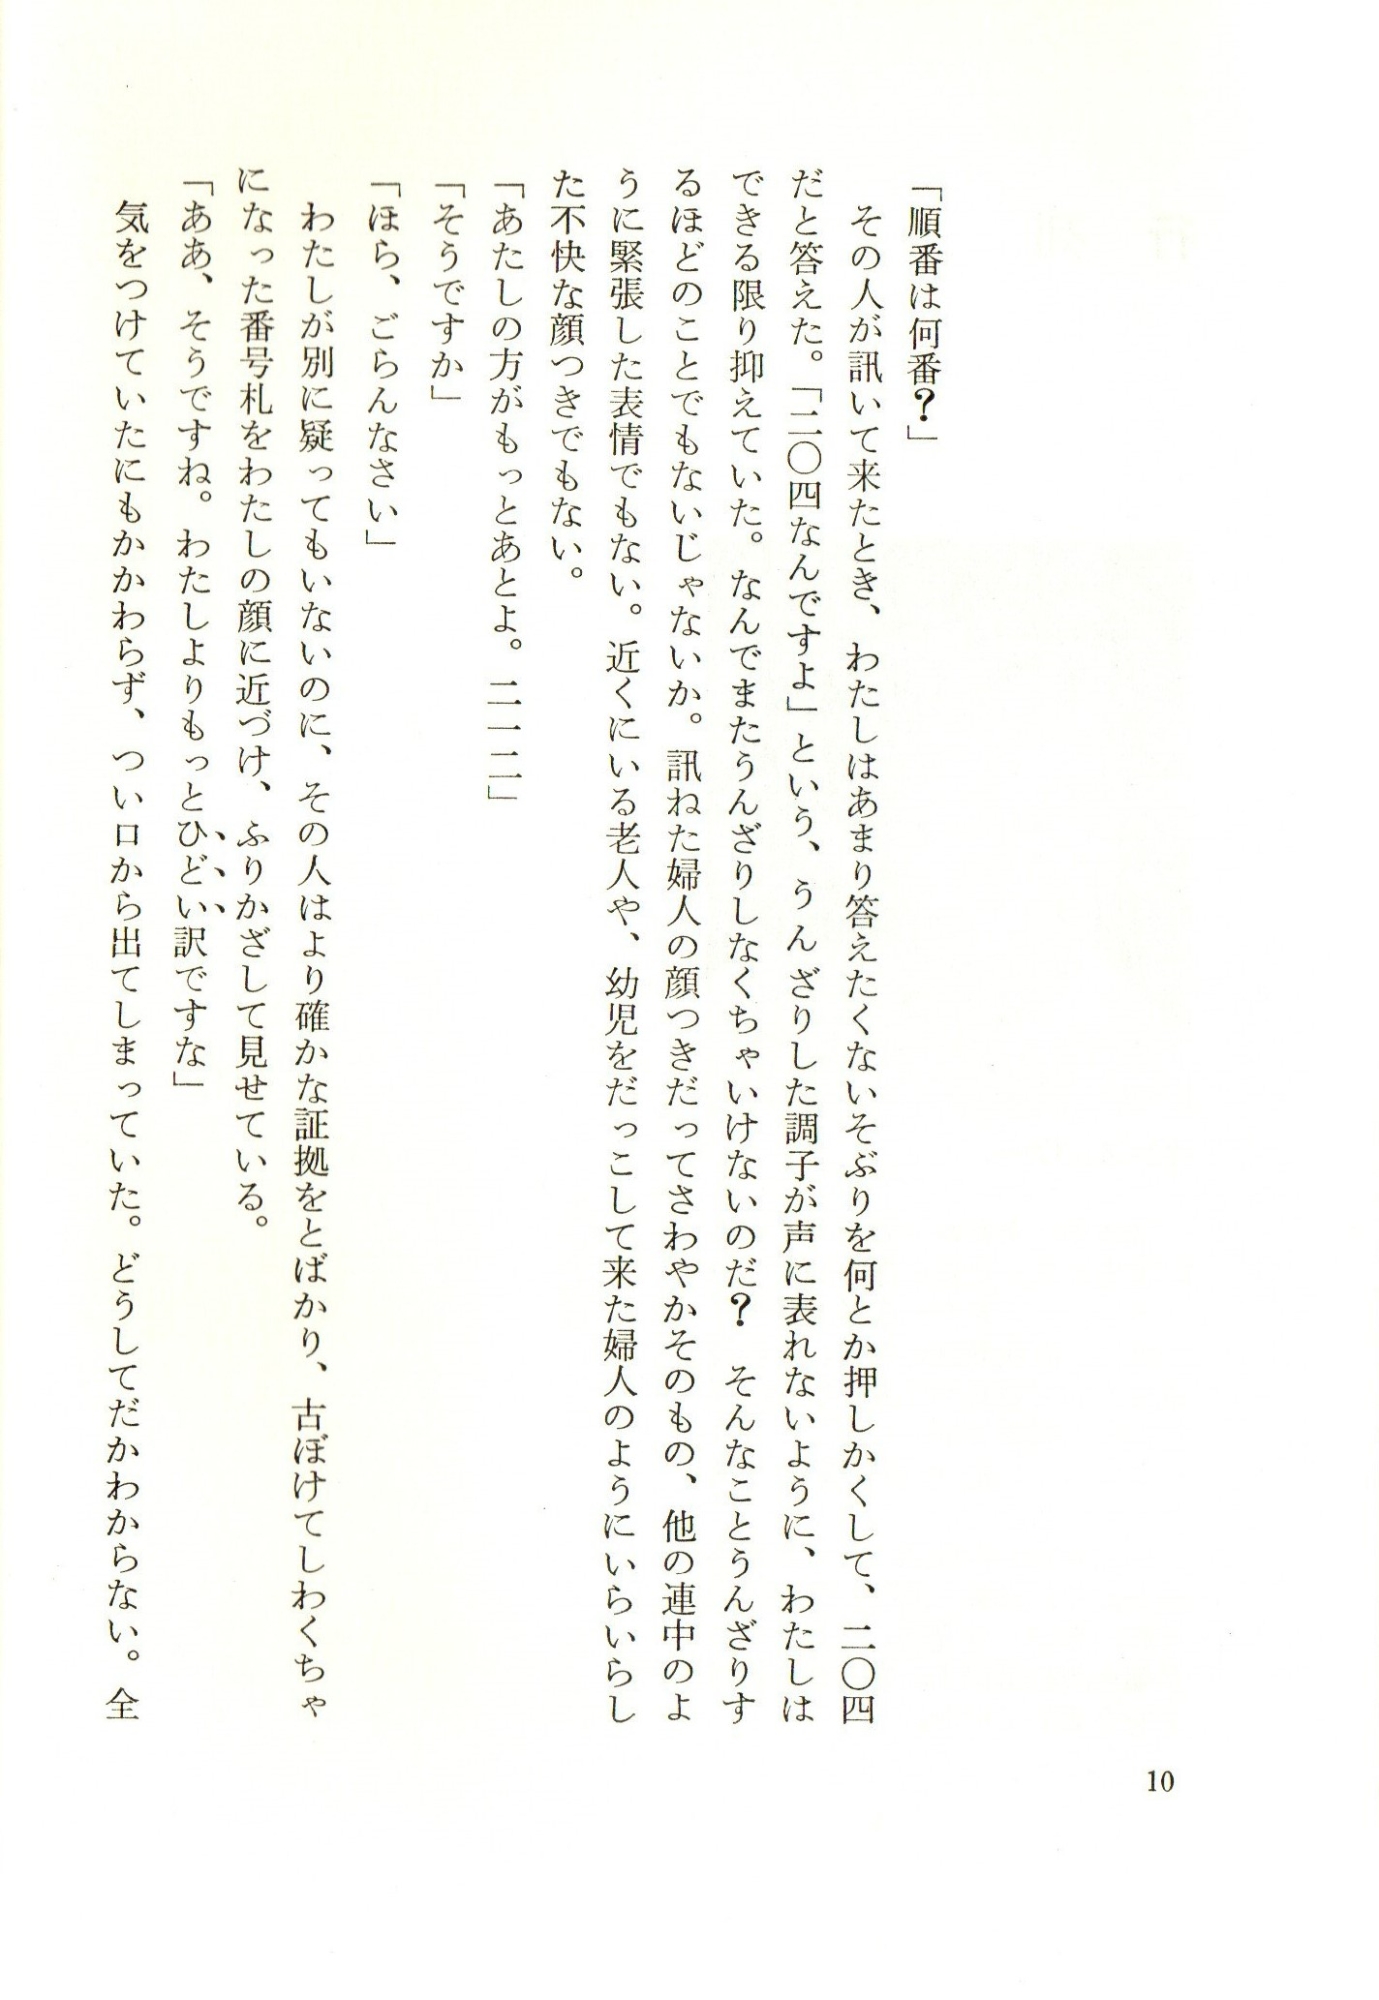 「順番は何番？」
　その人が訊いて来たとき、わたしはあまり答えたくないそぶりを何とか押しかくして、二〇四
だと答えた。「二〇四なんですよ」という、うんざりした調子が声に表れないように、わたしは
できる限り抑えていた。なんでまたうんざりしなくちゃいけないのだ？　そんなことうんざりす
るほどのことでもないじゃないか。訊ねた婦人の顔つきだってさわやかそのもの、他の連中のよ
うに緊張した表情でもない。近くにいる老人や、幼児をだっこして来た婦人のようにいらいらし
た不快な顔つきでもない。
「あたしの方がもっとあとよ。二一二」
「そうですか」
「ほら、ごらんなさい」
　わたしが別に疑ってもいないのに、その人はより確かな証拠をとばかり、古ぼけてしわくちゃ
になった番号札をわたしの顔に近づけ、ふりかざして見せている。
「ああ、そうですね。わたしよりもっとひどい訳ですな」
　気をつけていたにもかかわらず、つい口から出てしまっていた。どうしてだかわからない。全
10